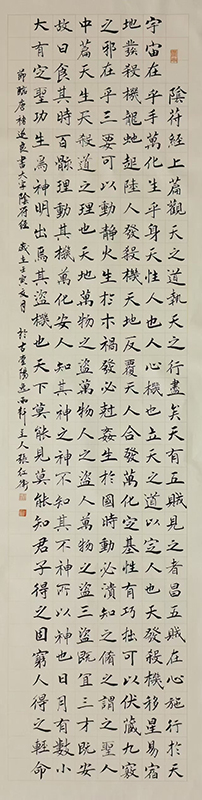 陰符經上篇觀天之道執天之行盡矣天有五賊見之者昌五賊在心施行於天
宇宙在乎手萬化生乎身天性人也人心機也立天之道以定人也天發殺機移星易宿
地發殺機龍蛇起陸人發殺機天地反覆天人合發萬化定基性有巧拙可以伏藏九竅
之邪在乎三要可以動靜火生於木禍發必尅姦生於國時動必潰知之脩之謂之聖人
中篇天生天殺道之理也天地萬物之盜萬物人之盜人萬物之盜三盜既宜三才既安
故曰食其時百骸理動其機萬化安人知其神之神不知其不神所以神也日月有數小
大有定聖功生焉神明出焉其盜機也天下莫能見莫能知君子得之固窮人得之輕命
節臨唐褚遂良書大字陰符經 歲在壬寅 月 於古 軒主人張